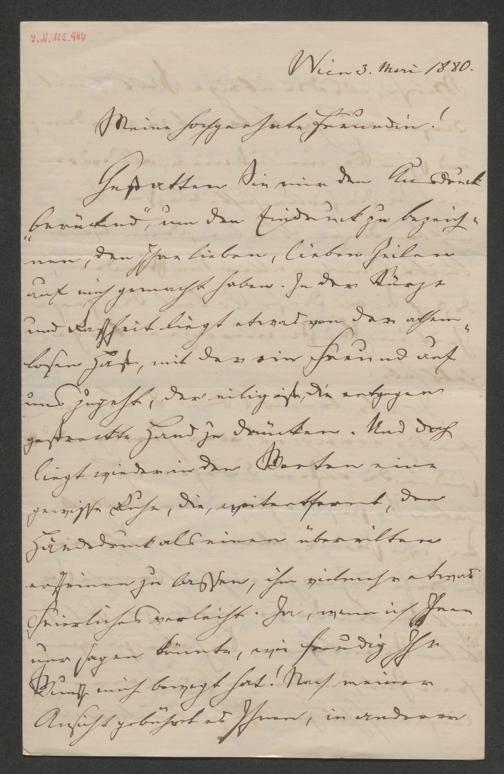 I.N. 122.946
Wien 3. Mai 1880.
Meine hochgeehrte Freundin!
Gestatten Sie mir den Ausdruck
"berückend", um den Eindruck zu bezeich-
nen, den Ihre lieben, lieben Zeilen
auf mich gemacht haben. In der Kürze
und Raschheit liegt etwas von der athem-
losen Hast, mit der ein Freund auf
uns zugeht, der eilig ist, die entgegen
gestreckte Hand zu drücken. Und doch
liegt wieder in den Worten eine
gewisse Ruhe, die, weit entfernt, den
Händedruck als einen übereilten
erscheinen zu lassen, ihm vielmehr etwas
Feierliches verleiht. Ja, wenn ich Ihnen
nur sagen könnte, wie freudig Ihr
Wunsch mich bewegt hat! Nach meiner
Ansicht gebührt es Ihnen, in anderen